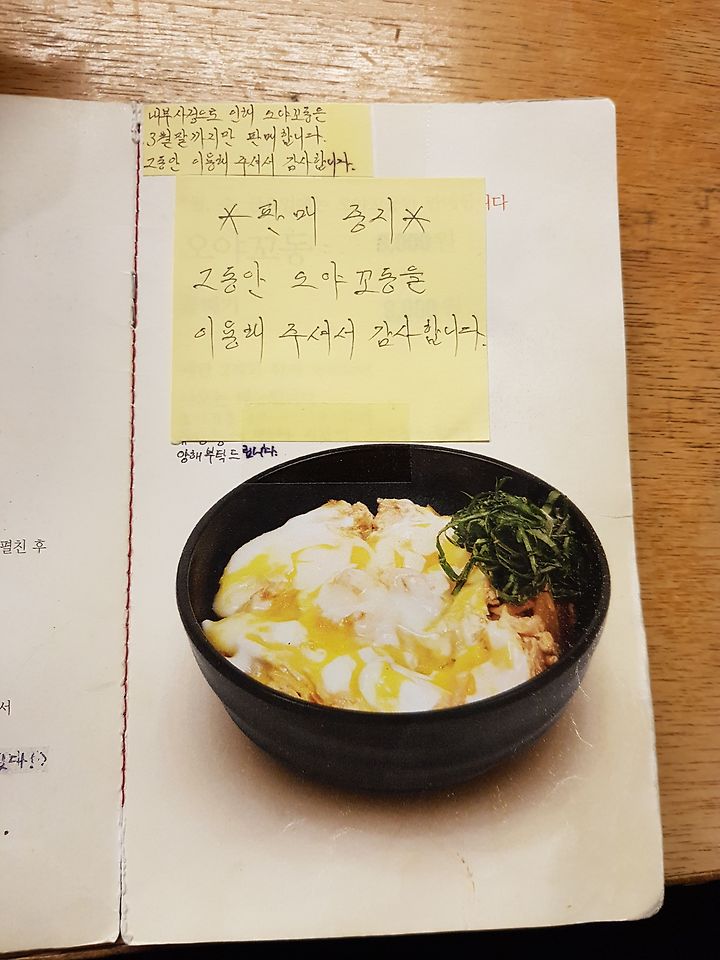 내부사정으로 인해 오야꼬동은
3월말까지만 판매합니다.
그동안 이용해 주셔서 감사합니다.
니다
*판매 중지*
그동안 오야꼬동을
이용해 주셔서 감사합니다.
양해부탁드립니다.
펼친 후
서